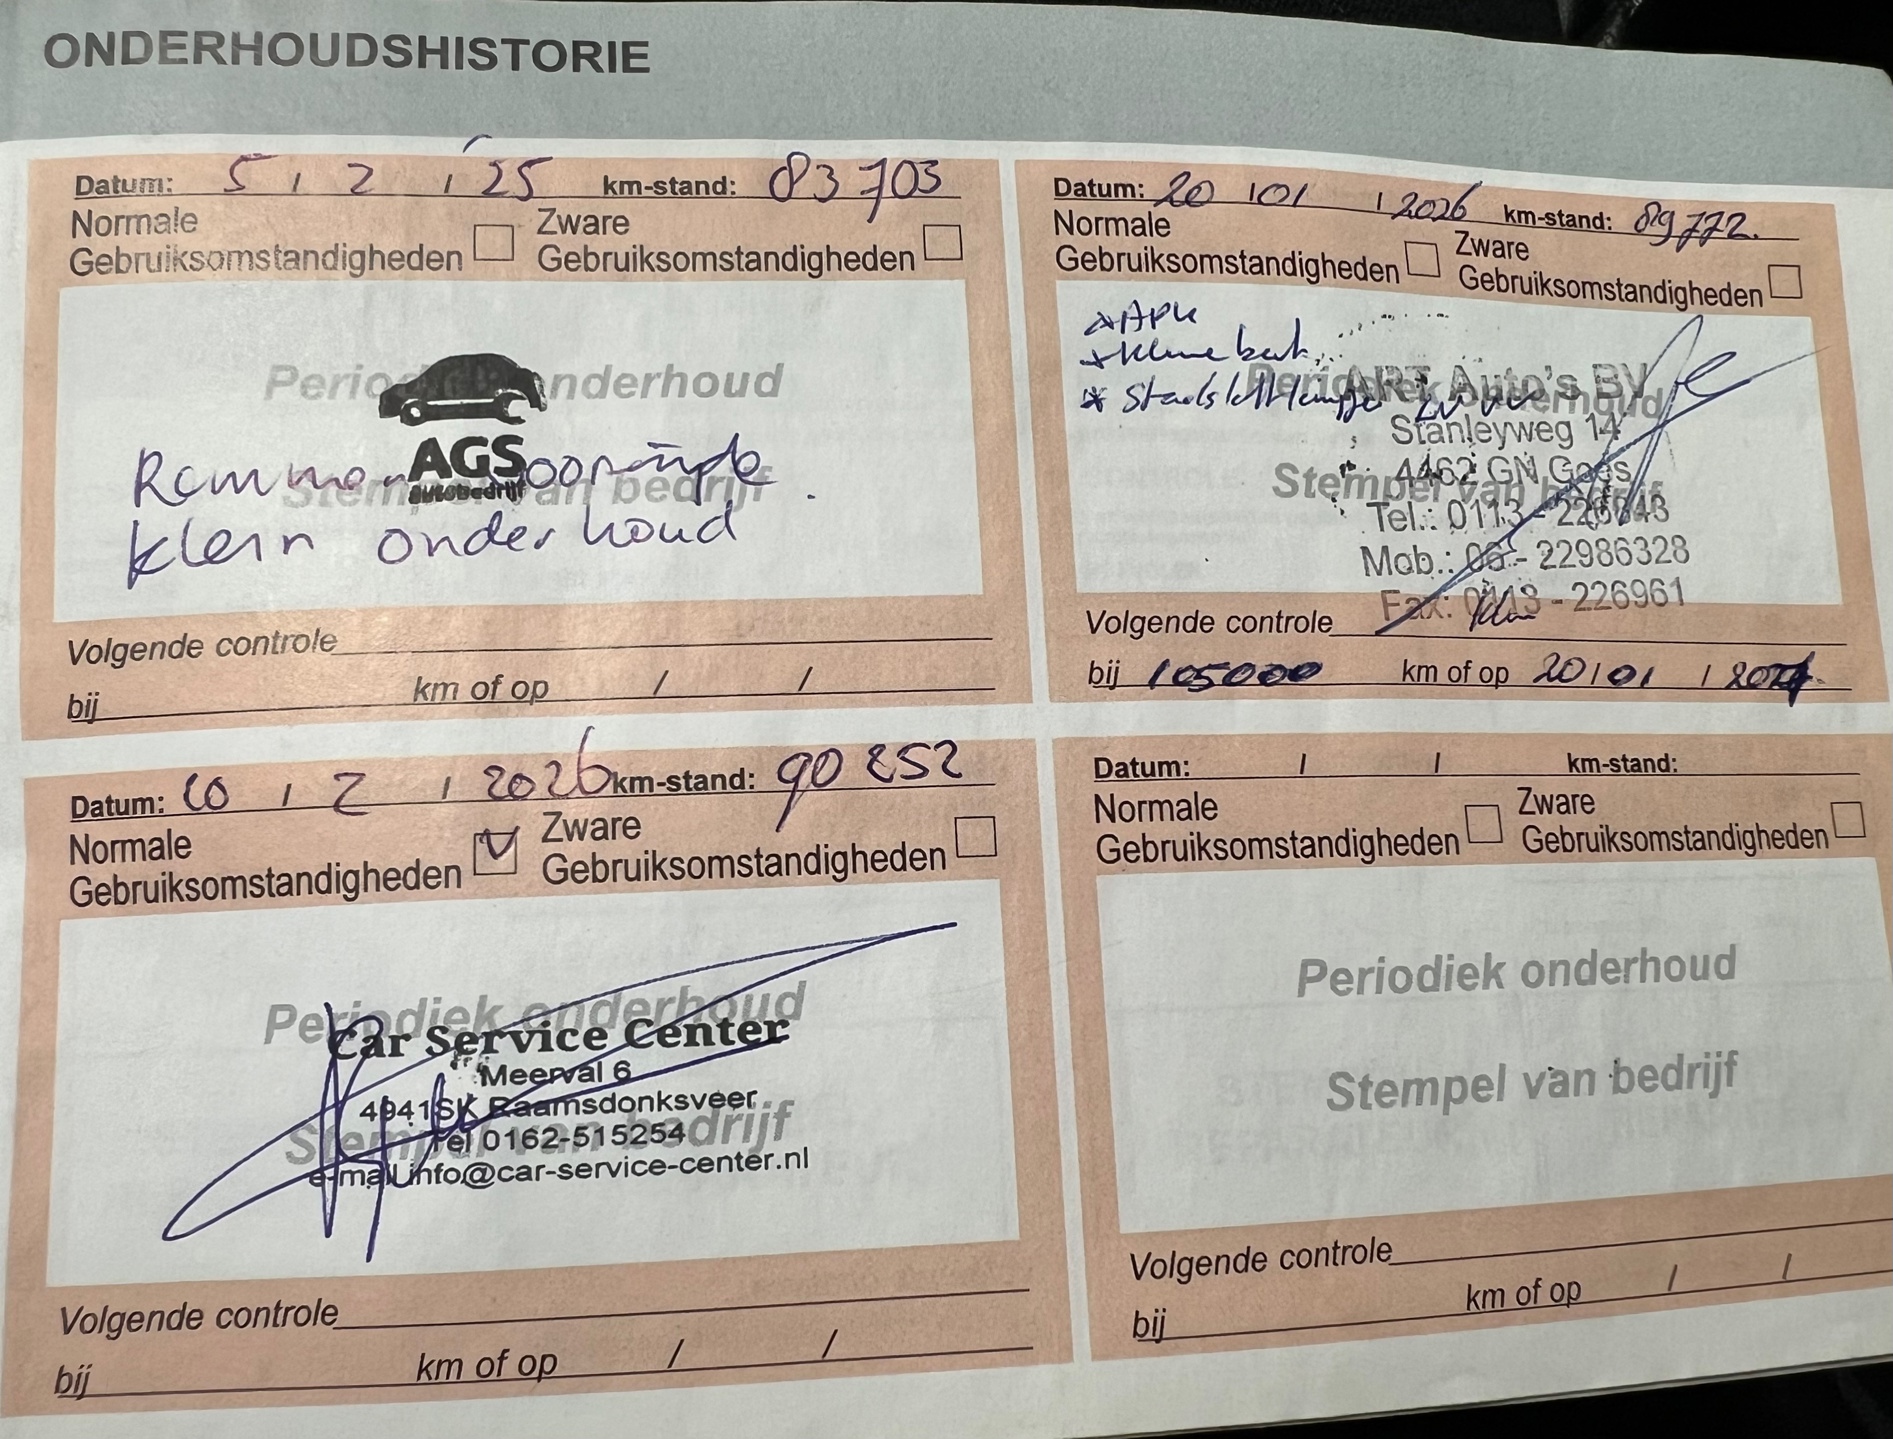 ONDERHOUDSHISTORIE
Datum: 5 / 2 / '25 km-stand: 83703
Normale
Gebruiksomstandigheden
Zware
Gebruiksomstandigheden
Periodiek onderhoud
AGS
autobedrijf
Stempel van bedrijf
Remmen voorzijde
klein onderhoud
Volgende controle
bij km of op / /
Datum: 20 / 01 / 2026 km-stand: 89772.
Normale
Gebruiksomstandigheden
Zware
Gebruiksomstandigheden
* APK
* kleine beurt
*
Periodiek onderhoud
ART Auto's BV
Stanleyweg 14
4462 GN Goes
Stempel van bedrijf
Tel.: 0113 -
Mob.: 06 - 22986328
Fax: 0113 - 226961
Volgende controle
bij 105000 km of op 20 / 01 /
Datum: 10 / 2 / 2026 km-stand: 90252
Normale
Gebruiksomstandigheden
Zware
Gebruiksomstandigheden
Periodiek onderhoud
Car Service Center
Meerval 6
4941SK Raamsdonksveer
Stempel van bedrijf
Tel 0162-515254
e-mail info@car-service-center.nl
Volgende controle
bij km of op / /
Datum: / / km-stand:
Normale
Gebruiksomstandigheden
Zware
Gebruiksomstandigheden
Periodiek onderhoud
Stempel van bedrijf
Volgende controle
bij km of op / /